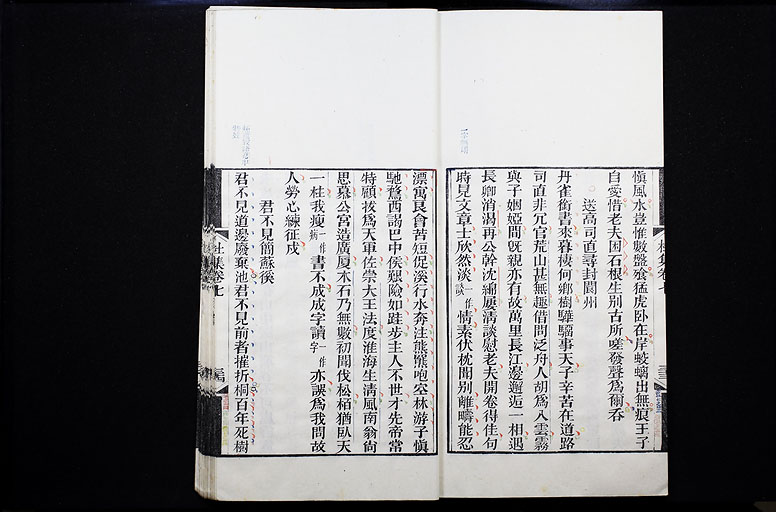 愼風水豈惟數盤飧猛虎臥在岸蛟螭出無痕王子
自愛惜老夫困石根生別古所嗟發聲爲爾吞
送高司直尋封閬州
丹雀銜書來暮棲何鄉樹驊騮事天子辛苦在道路
司直非冗官荒山甚無趣借問泛舟人胡爲入雲霧
與子姻婭間旣親亦有故萬里長江邊邂逅一相遇
長卿消渴再公幹沈綿屢淸談慰老夫開卷得佳句
時見文章士欣然淡一作談情素伏枕聞別離疇能忍
漂寓良會苦短促溪行水奔注熊羆咆空林游子愼
馳騖西謁巴中侯艱險如跬步主人不世才先帝常
特顧拔爲天軍佐崇大王法度淮海生淸風南翁尙
思慕公宮造廣厦木石乃無數初聞伐松栢猶臥天
一柱我瘦一作病書不成成字讀一作字亦誤爲我問故
人勞心練征戍
君不見簡蘇徯
君不見道邊廢棄池君不見前者摧折桐百年死樹
杜集卷七